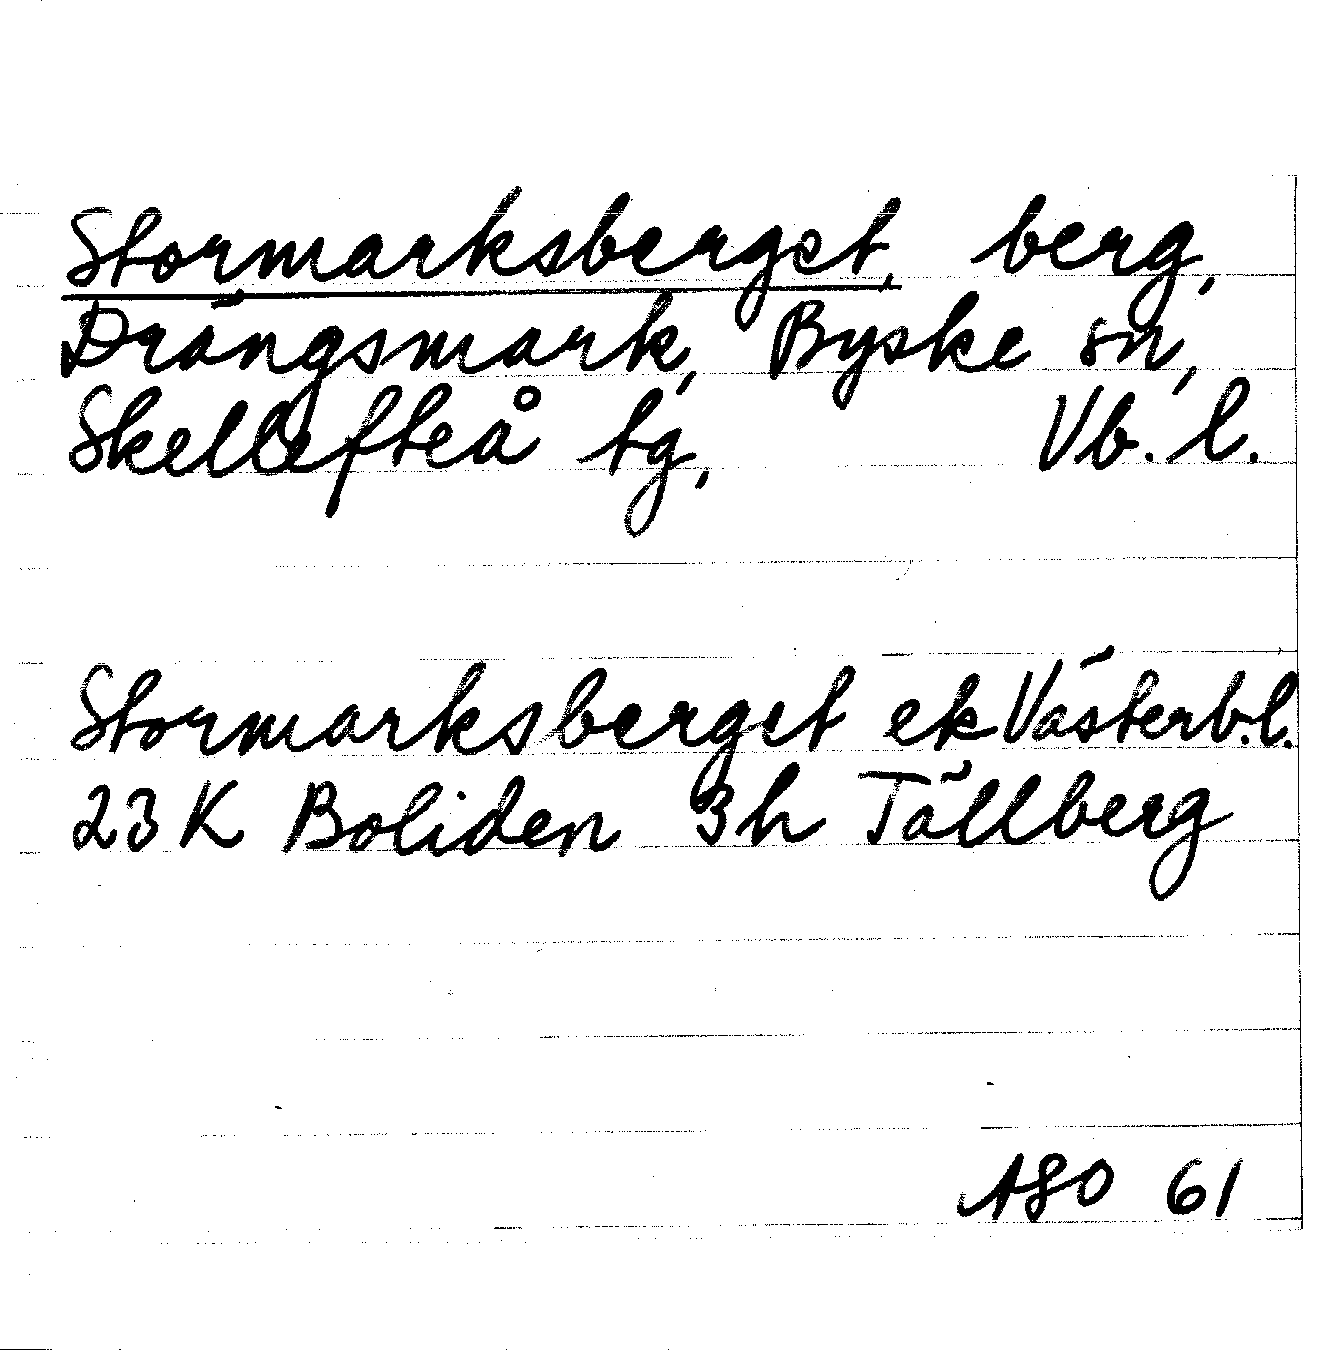 Stormarksberget, berg,
Drängsmark, Byske sn,
Skellefteå tg, Vb. l.
Stormarksberget ek Västerb.l.
23 K Boliden 3h Tällberg
ASO 61